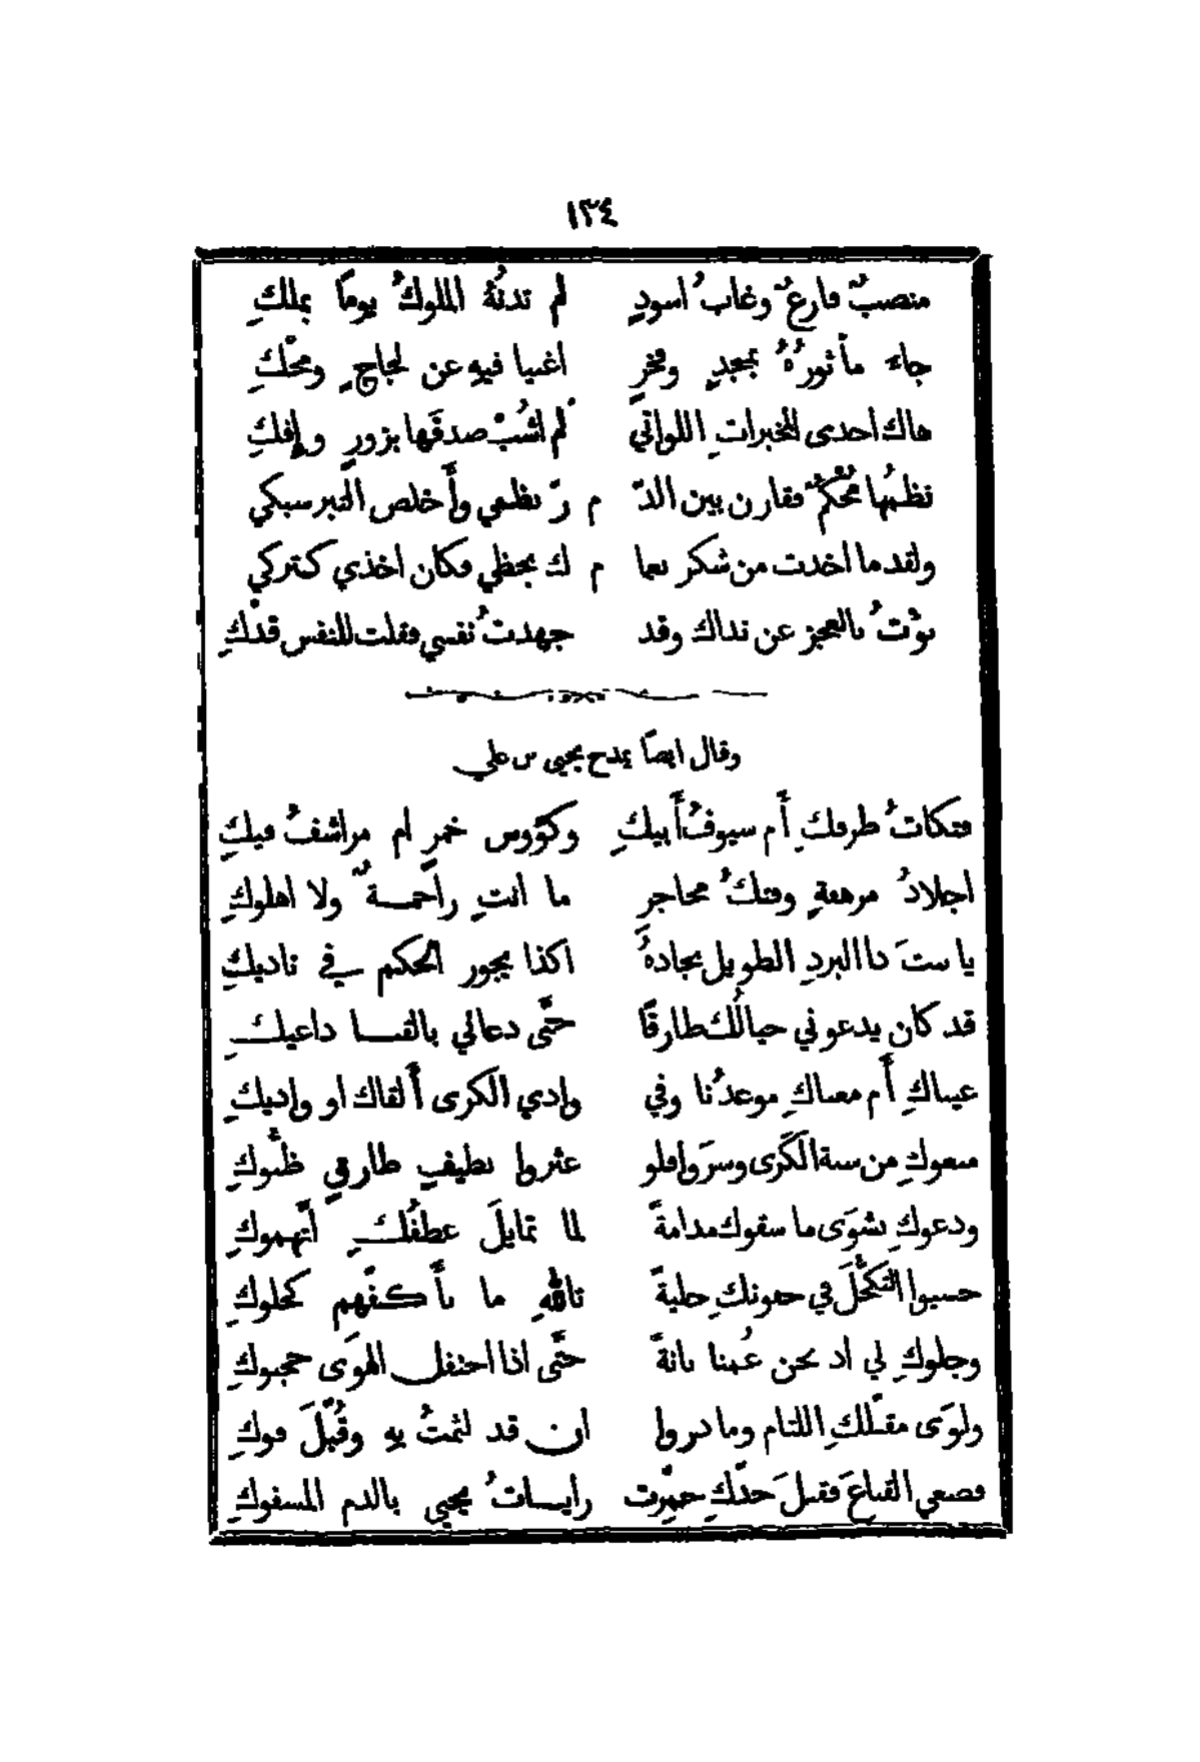 ١٣٤
منصبٌ فارعٌ وغابُ اسودٍ لم تدنهُ الملوكُ يومًا بملكِ
جاء مأثورُهُ بمجدٍ وفخرٍ اغنيا فيهِ عن لجاجٍ ومحْكِ
هاك احدى المخبراتِ اللواتي لم اشُبْ صدقَها بزورٍ وإِفكِ
نظمُها مُحْكَمٌ فقارن بين الدّ م رّ نظمي وأَخلص التبر سبكي
ولقد ما اخذت من شكر نعما م ك بحظي فكان اخذي كتركي
بؤْتُ بالعجز عن نداك وقد جهدتُ نفسي فقلت للنفس قدْكِ
وقال ايضًا يمدح يحيى بن علي
فتكاتُ طرفكِ أَم سيوفُ أَبيكِ وكؤوس خمرٍ ام مراشفُ فيكِ
اجلادُ مرهفةٍ وفتكُ محاجرٍ ما انتِ راحمةٌ ولا اهلوكِ
يا بنتَ ذا البردِ الطويل نجادهُ اكذا يجور الحكم في ناديكِ
قد كان يدعوني خيالُك طارقًا حتَّى دعالي بالقنا داعيكِ
عيناكِ أَم مغناكِ موعدُنا وفي وادي الكرى أَلقاك او واديكِ
منعوكِ من سنة الكَرَى وسرَوا فلو عثروا بطيفٍ طارقٍ ظنُّوكِ
ودعوكِ نشوَى ما سقوك مدامةً لما تمايلَ عطفُكِ اتَّهموكِ
حسبوا التكحُّلَ في جفونكِ حليةً تاللهِ ما بأَكفّهم كحلوكِ
وجلوكِ لي اذ نحن غُصنا بانةً حتَّى اذا احتفل الهوَى حجبوكِ
ولوَى مقبّلكِ اللثام وما دروا ان قد لثمتُ بهِ وقُبّلَ فوكِ
فضعي القناعَ فقبلَ خدّكِ ضرّجت راياتُ يحيى بالدم المسفوكِ